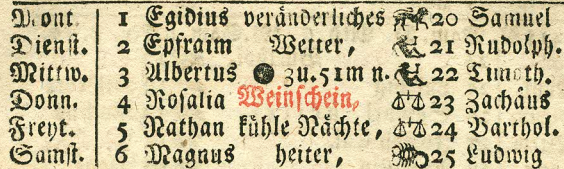 Mont. 1 Egidius veränderliches 20 Samuel
Dienst. 2 Epfraim Wetter, 21 Rudolph.
Mittw. 3 Albertus ● 3 u. 51 m n. 22 Timoth.
Donn. 4 Rosalia Weinschein, ♎ 23 Zachäus
Freyt. 5 Nathan kühle Nächte, ♎ 24 Barthol.
Samst. 6 Magnus heiter, 25 Ludwig